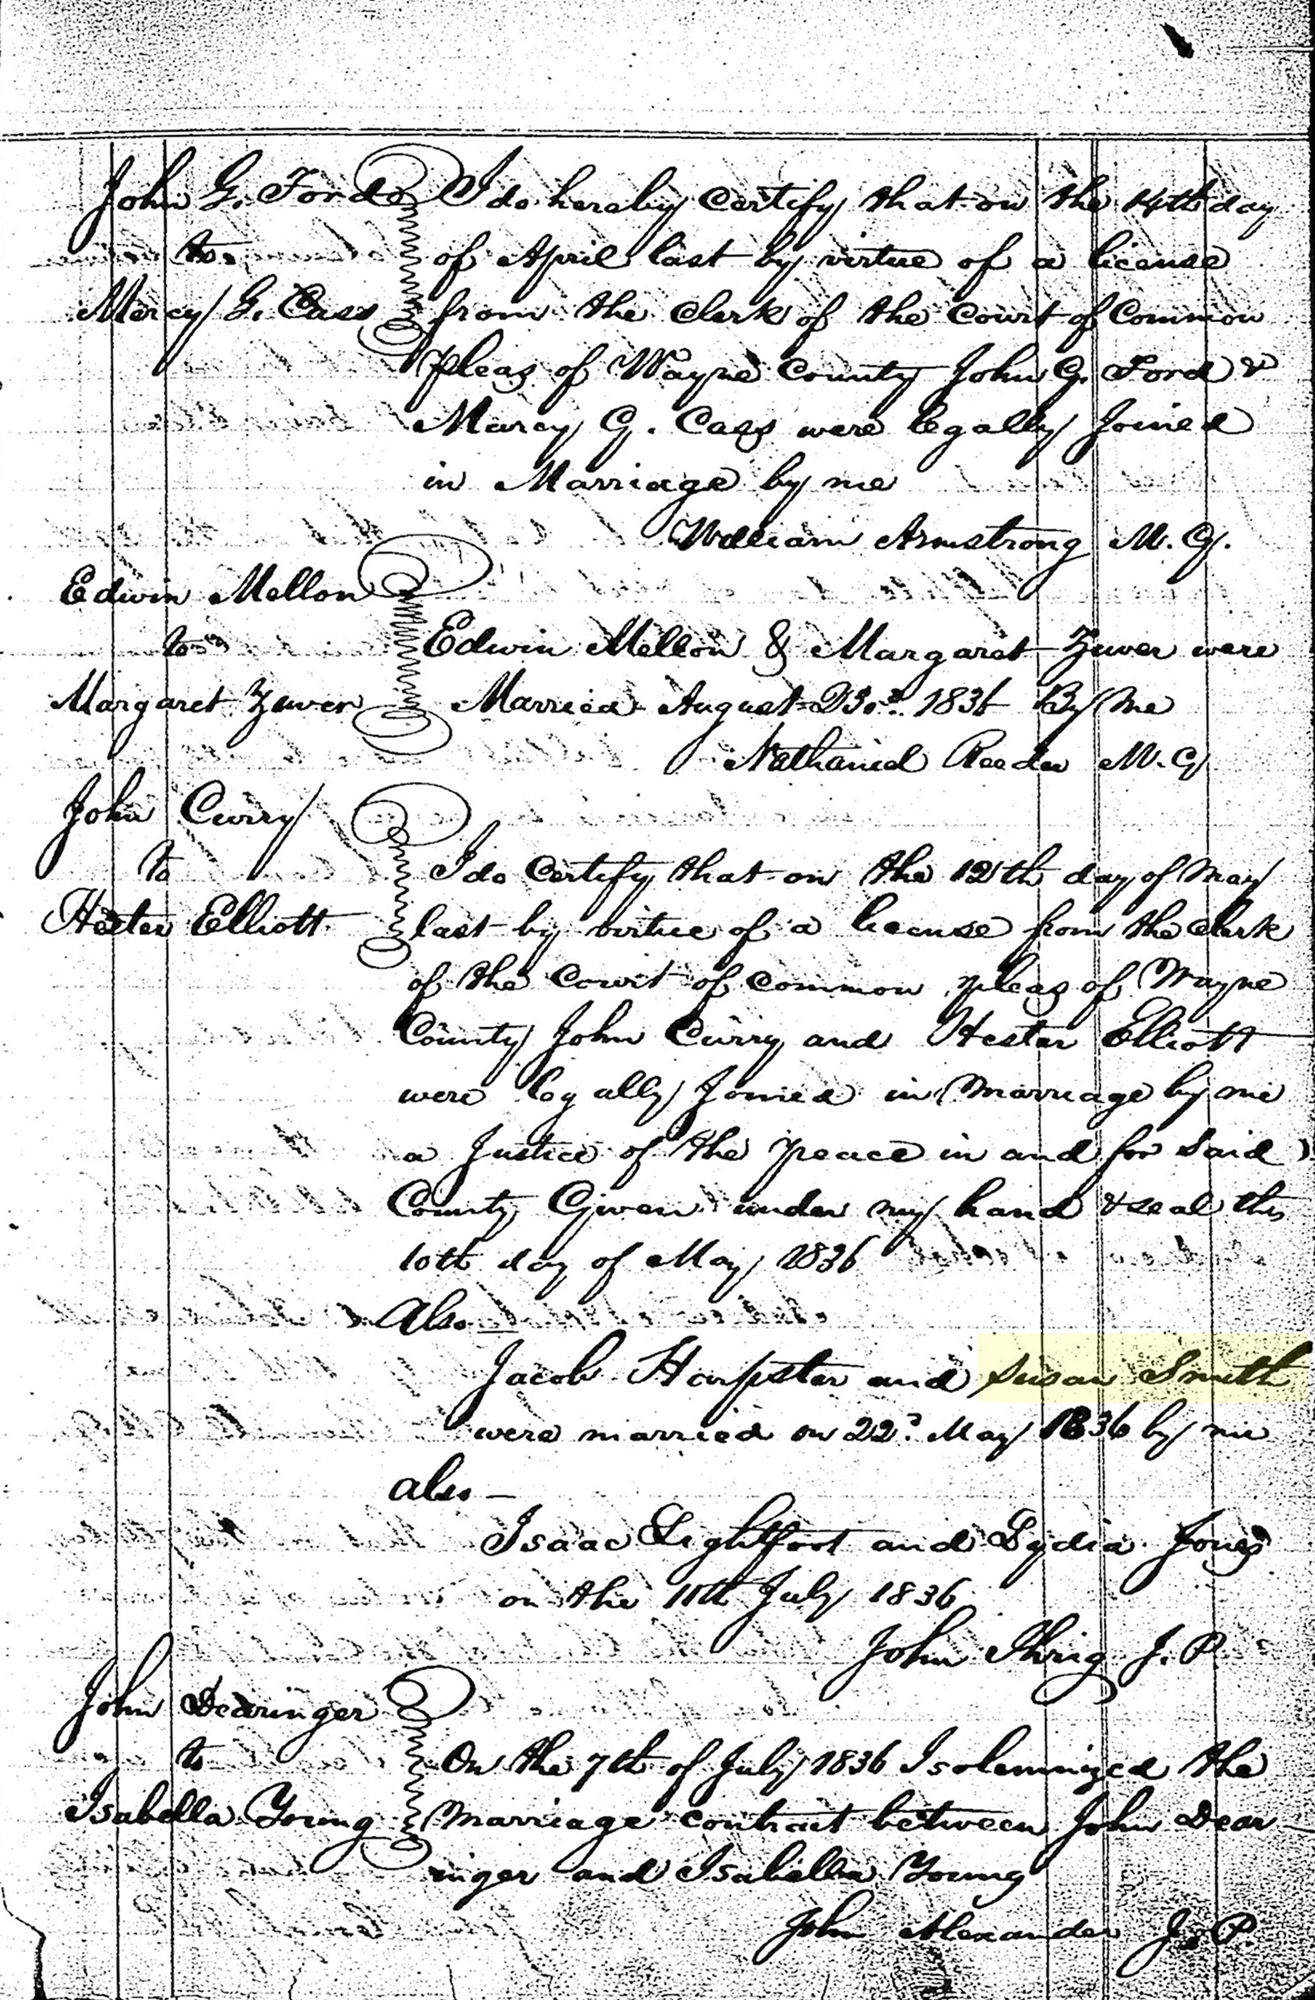 John G. Ford I do hereby Certify that on the 14th day
to of April last by virtue of a license
Mercy G. Cass from the clerk of the Court of Common
Pleas of Wayne County John G. Ford &
Marcy G. Cass were legally Joined
in Marriage by me
William Armstrong M. G.
Edwin Mellon
to Edwin Mellon & Margaret Zuver were
Margaret Zuver Married August 23d. 1836 By Me
Nathaniel Reeder M. G.
John Curry
to I do Certify that on the 12th day of May
Hester Elliott last by virtue of a license from the clerk
of the Court of common pleas of Wayne
County John Curry and Hester Elliott
were legally Joined in Marriage by me
a Justice of the peace in and for Said
County Given under my hand & seal this
10th day of May 1836
Also
Jacob Harpster and Susan Smith
were married on 22d May 1836 by me
also —
Isaac Lightfoot and Lydia Jones
on the 11th July 1836
John Ihrig J. P.
John Dearinger
to On the 7th of July 1836 I solemnized the
Isabella Young Marriage contract between John Dear
inger and Isabella Young
John Alexander J. P.